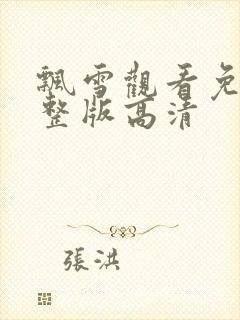 飄雪觀看免
整版高清
張洪